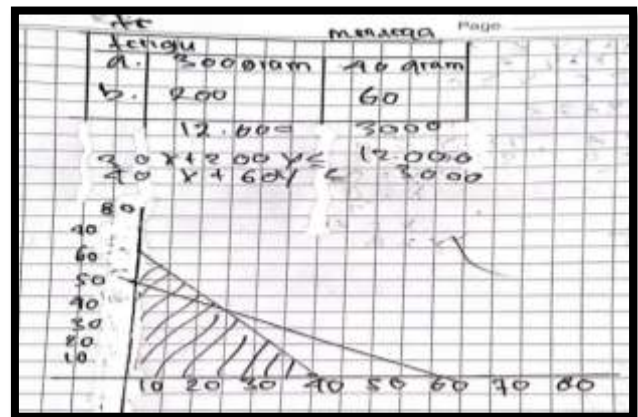 Page
Terigu mentega
a. 300 gram 40 gram
b. 200 60
12.000 3000
30x+200y≤ 12.000
40 x + 60y ≤ 3000
80
70
60
50
40
30
20
10
10 20 30 40 50 60 70 80